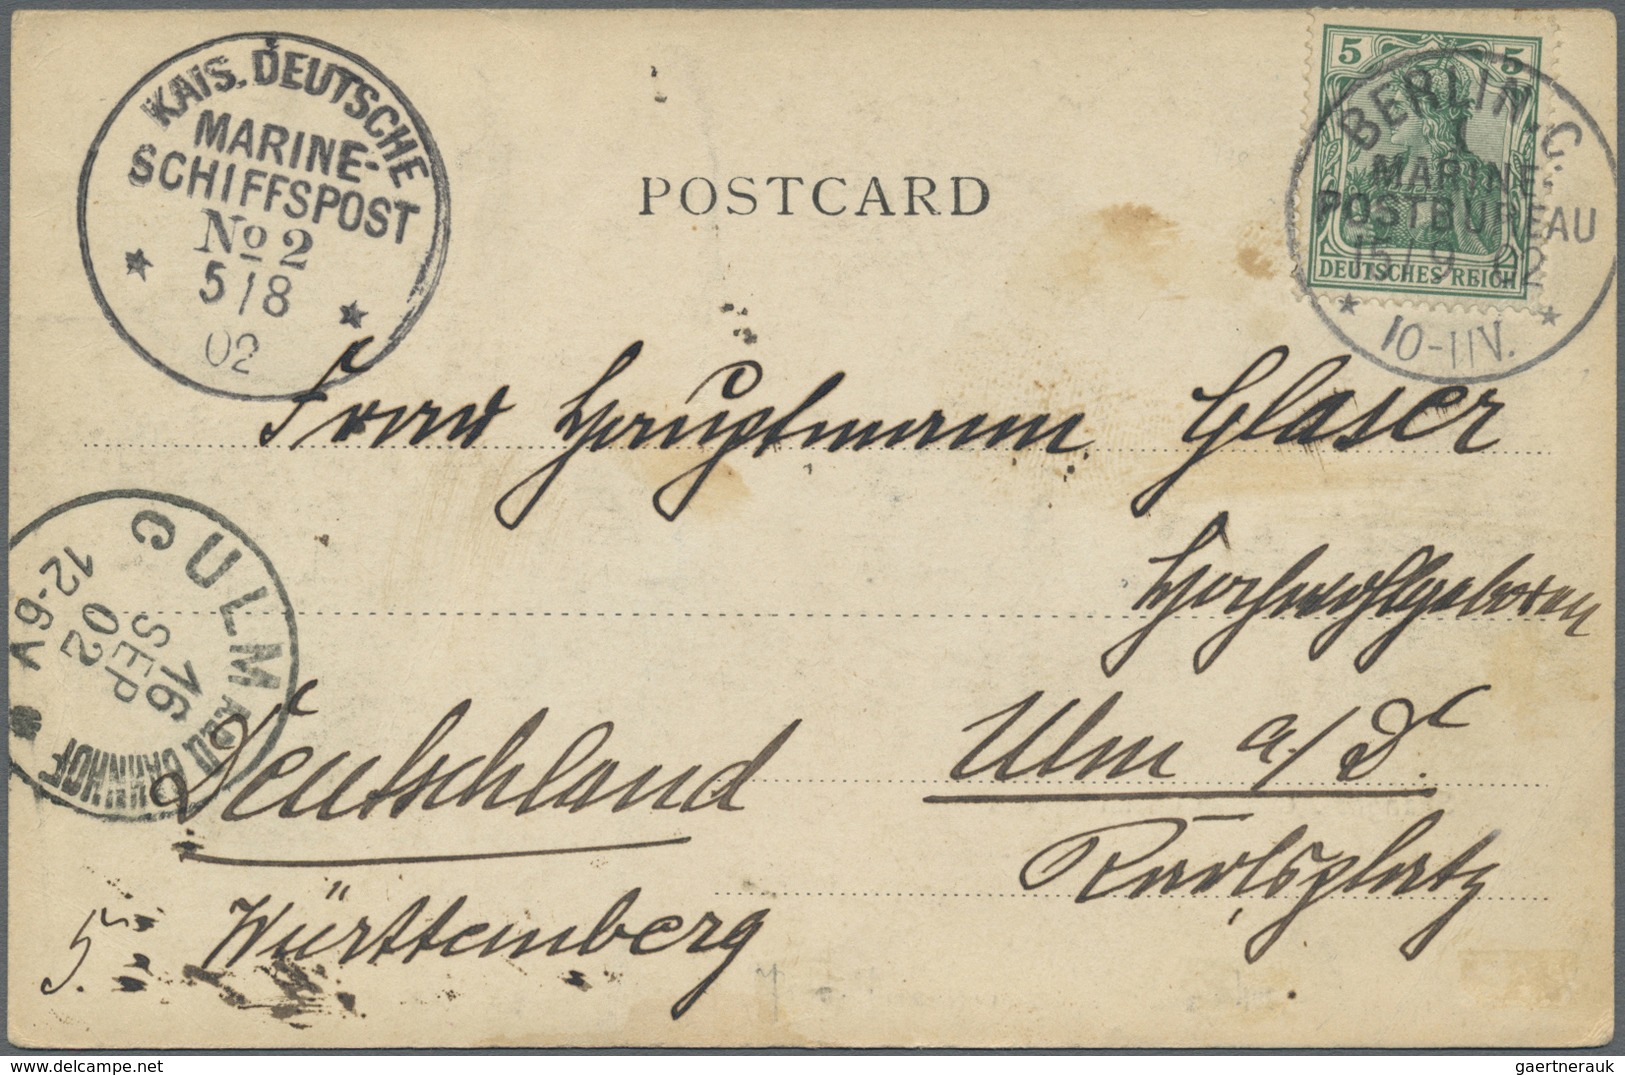 KAIS. DEUTSCHE
MARINE-
SCHIFFSPOST
No 2
5/8
02
POSTCARD
5 5
DEUTSCHES REICH
BERLIN.C.
MARINE-
POSTBUREAU
15/9 02
10-11V.
Frau Hauptmann Glaser
Hochwohlgeboren
CULM
BAHNHOF
16
SEP
02
12-6V
Deutschland
Ulm a/D.
Karlsplatz
5.
Württemberg
delcampe.net
gaertnerauk